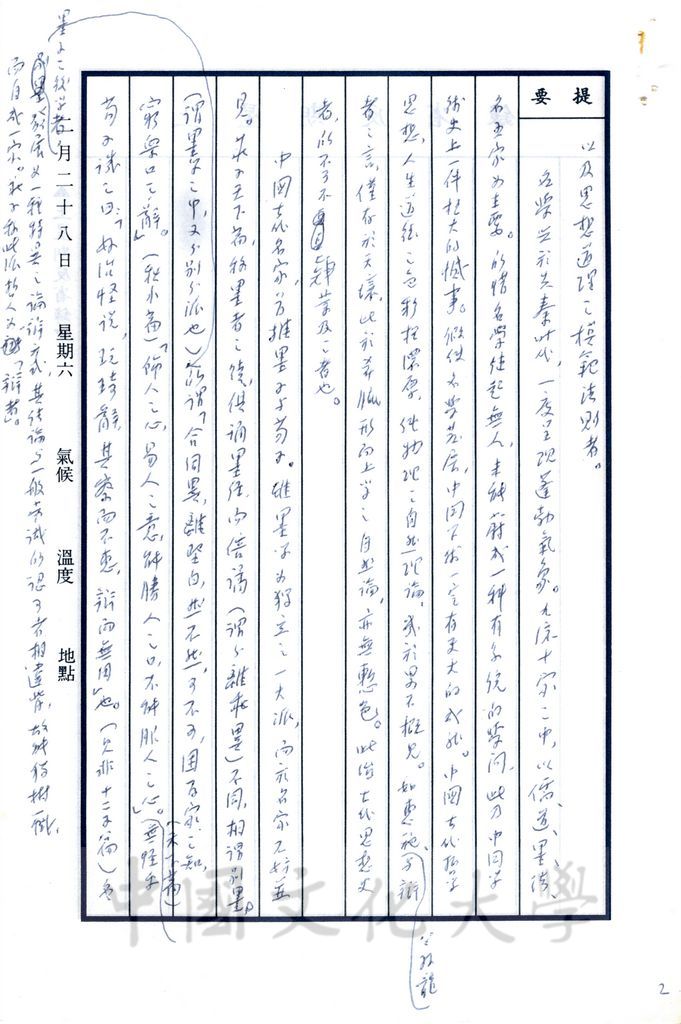 提要
以及思想道理之模範法則者。
名學興於先秦時代,一度呈現蓬勃氣象。九流十家之中,以儒、道、墨、法、
名五家為主要。的惜名學繼起無人,未能成一種有系統的學問,此乃中國學
術史上一件極大的憾事。假使名學發展,中國學術一定有更大的成就。中國古代哲學
思想,人生道德之色彩極濃厚,但物理之自然理論,或於畧不概見。如惠施、公孫龍辯
者之言,僅存於天壤,此於希臘形而上學之自然論,亦無慙色。此治古代思想史
者,所不可不肆業及之者也。
中國古代名家,首推墨子與荀子。雖墨學為獨立之一大派,而於名家不妨並
見。莊子天下篇,稱墨者之徒,俱誦墨經,而倍譎(謂分離乖異)不同,相謂別墨。
(謂墨學之中,又分別分派也)所謂「合同異,離堅白,然不然,可不可,困百家之知,
窮衆口之辭。」(秋水篇)「飾人之心,易人之意,能勝人之口,不能服人之心。」(天下篇)
荀子譏之曰:「好治怪說,玩琦辭,甚察而不惠,辯而無用」也。(見非十二子篇)
墨子之後學者
發展為一種特異之論辯方式,其結論與一般常識的認可者相違背,故能獨樹一幟,
而自成一家。
「辯者」。
二月二十八日 星期六 氣候 溫度 地點
中國文化大學
2